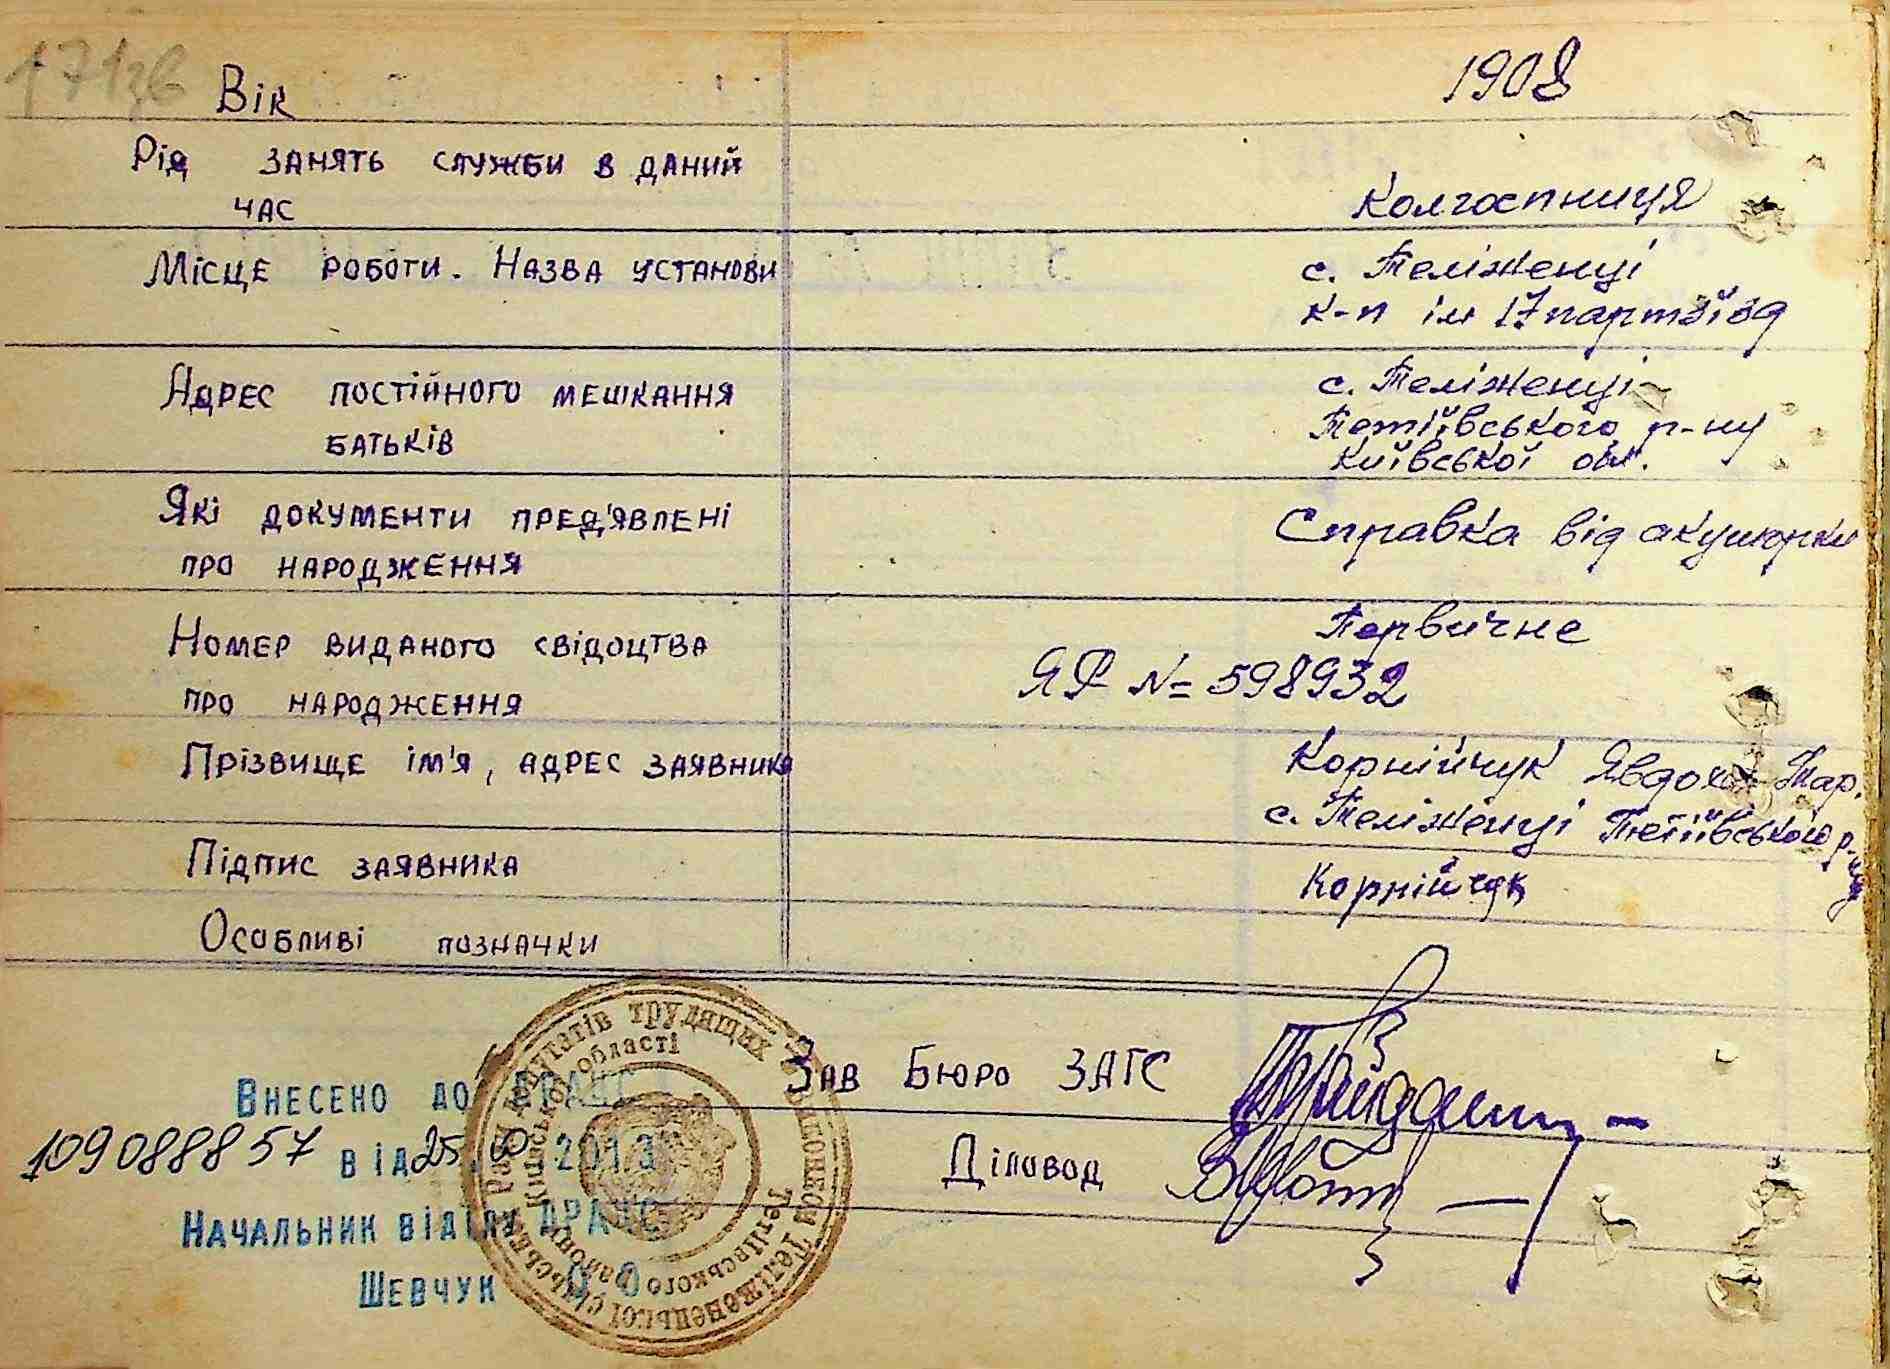 171зв
Вік 1908
Рід занять служби в даний
час Колгоспниця
Місце роботи. Назва установи с. Теліженці
к-п ім 17 партз'їзд
Адрес постійного мешкання с. Теліженці
батьків Тетіївського р-ну
Київської обл.
Які документи пред'явлені Справка від акушорки
про народження
Номер виданого свідоцтва Первичне
про народження ЯР № 598932
Прізвище ім'я, адрес заявника Корнійчук Явдоха Мар.
с. Теліженці Тетіївського р-ну
Підпис заявника Корнійчук
Особливі позначки
Зав Бюро ЗАГС
Діловод
Внесено до ДРАЦС
1090888857 від 25 2013
Начальник відділу ДРАЦС
Шевчук
Виконком Теліженецької сільської Ради депутатів трудящих
Тетіївського району Київської області